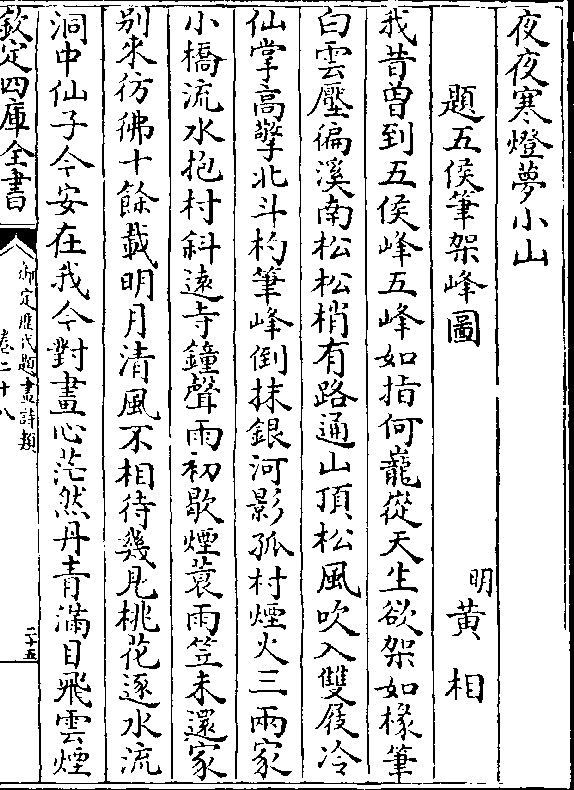 夜夜寒燈夢小山
題五侯筆架峰圖
明黃相
我昔曽到五侯峰五峰如指何巃嵸天生欲架如椽筆
白雲壓徧溪南松松梢有路通山頂松風吹入雙屐冷
仙掌高擎北斗杓筆峰倒抹銀河影孤村煙火三兩家
小橋流水抱村斜遠寺鐘聲雨初歇煙蓑雨笠未還家
別來彷彿十餘載明月清風不相待幾見桃花逐水流
洞中仙子今安在我今對畫心茫然丹青滿目飛雲煙
欽定四庫全書
御定歷代題畫詩類
卷二十八
二十五